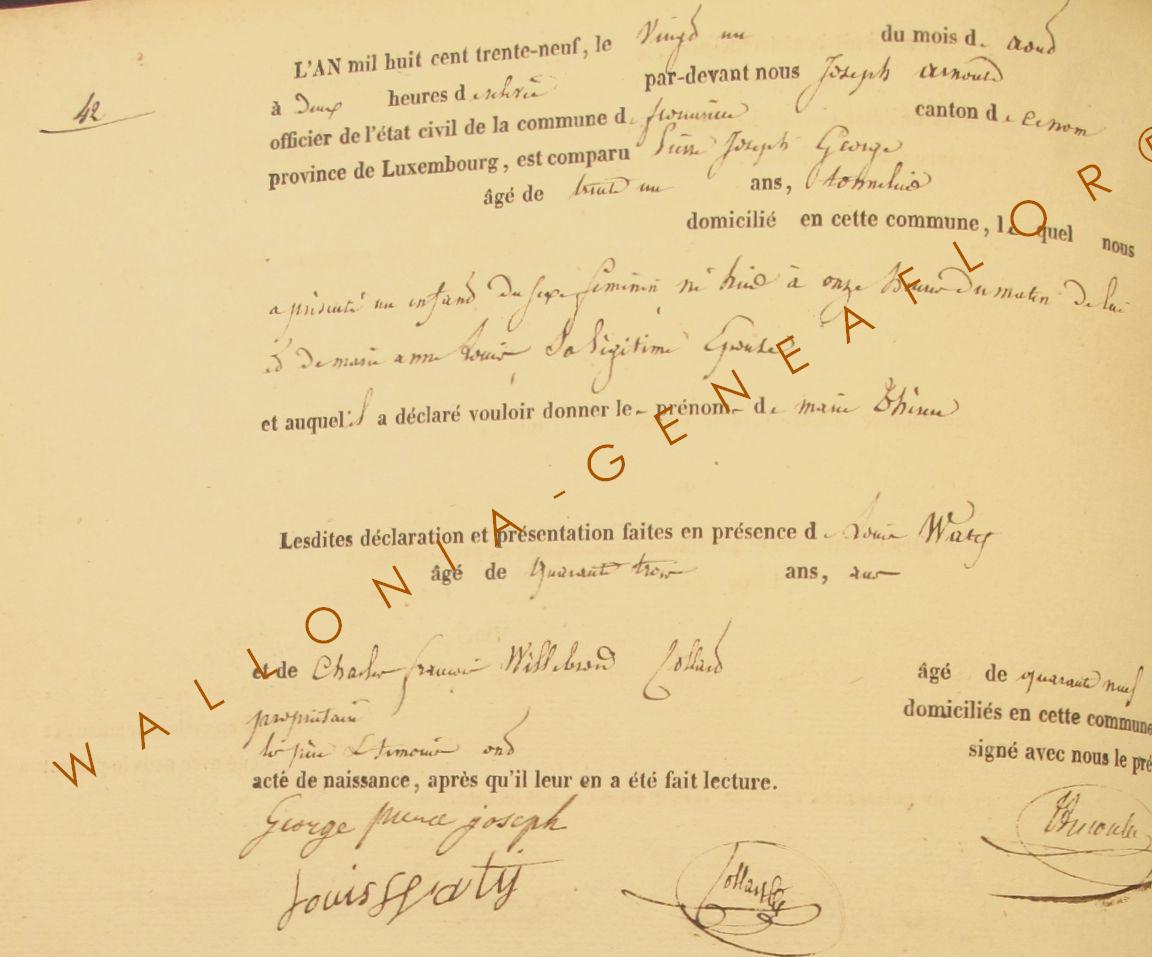 42
L'AN mil huit cent trente-neuf, le Vingt un du mois d. aout
à Deux heures d par-devant nous Joseph arnould
officier de l'état civil de la commune d. canton d.
province de Luxembourg, est comparu Pierre Joseph George
âgé de trente un ans, tonnelier
domicilié en cette commune, lequel nous
a présenté un enfant du sexe féminin né hier à onze heures du matin de lui
et de marie anne Louis Sa légitime Epouse
et auquel il a déclaré vouloir donner le prénom de marie Thérèse
Lesdites déclaration et présentation faites en présence d Louis Waty
âgé de quarante trois ans,
et de Charles françois Willebrord Collard âgé de quarante neuf
propriétaire domiciliés en cette commune
le père & témoins ont signé avec nous le pré
acté de naissance, après qu'il leur en a été fait lecture.
George pierre joseph
Louis Waty
WALLONIA-GENEAFLOR®